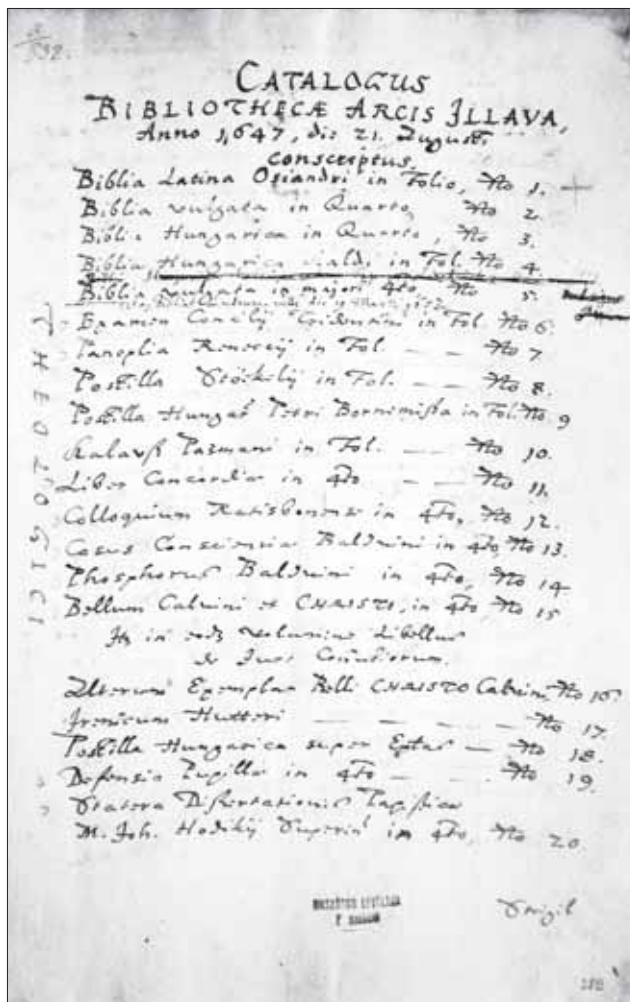 CATALOGUS
BIBLIOTHECÆ ARCIS ILLAVA,
Anno 1647, die 21. Augusti
conscriptus.
Biblia Latina Osiandri in Folio, No 1.
Biblia vulgata in Quarto, No 2.
Biblia Hungarica in Quarto, No 3.
Biblia Hungarica in Fol. No 4.
Biblia vulgata in majori 4to, No 5.
Examen Concilij Tridentini in Fol. No 6.
Panoplia in Fol. — — No 7.
Postilla Stöckelij in Fol. — — No 8.
Postilla Hungar Petri Bornemissa in Fol. No. 9
Kalauß Pazmani in Fol. — — No 10.
Liber Concordiæ in 4to — — No 11.
Colloquium Ratisbonense in 4to, No 12.
Casus Conscientiæ Balduini in 4to, No 13.
Phosphorus Balduini in 4to, No 14
Bellum Calvini et CHRISTI, in 4to, No 15
Itz in eodz volumine Libellus
de Jure
Alterum Exemplar Belli CHRISTO Calvini, No 16.
Irenicum Hutteri — — — — No 17.
Postilla Hungarica super — No 18.
Defensio in 4to — — No 19.
Statera Dissertationis
M. Joh. Hodikij in 4to, No 20
THEOLOGICI